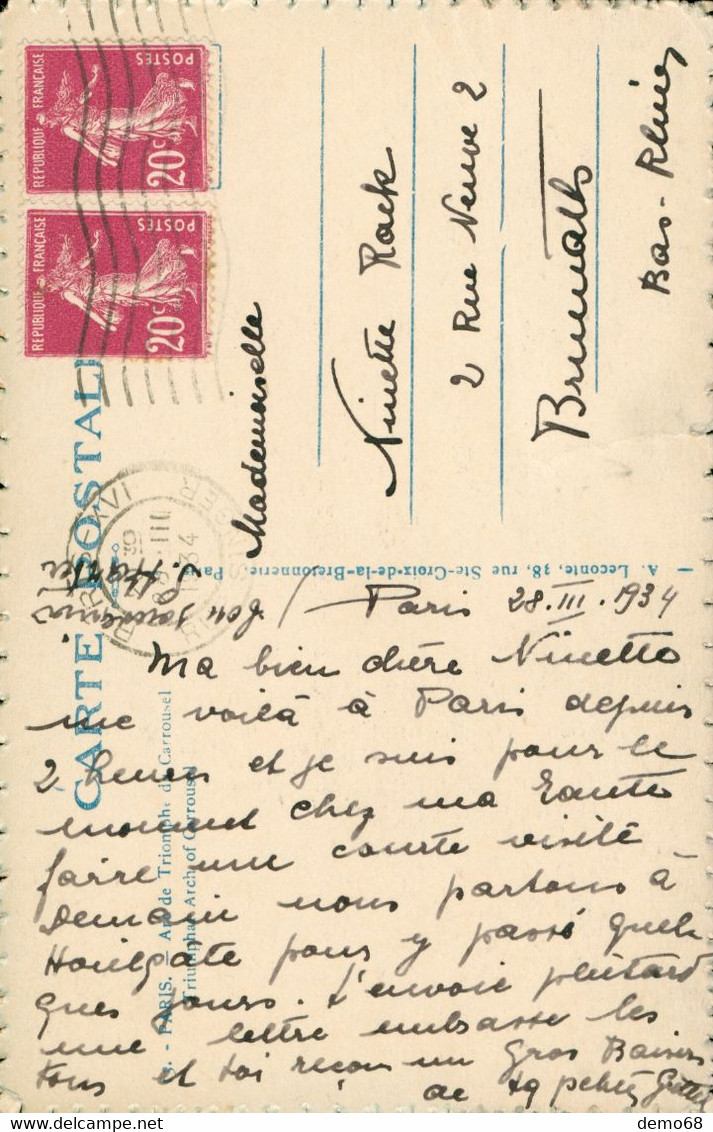 RÉPUBLIQUE FRANÇAISE
POSTES
20c
RÉPUBLIQUE FRANÇAISE
POSTES
20c
CARTE POSTALE
PARIS XVI
III
34
Mademoiselle
Ninette Rack
2 Rue Neuve 2
Brumath
Bas-Rhin
A. Leconte, 38, rue Ste-Croix-de-la-Bretonnerie, Paris
PARIS. - Arc de Triomphe du Carrousel
Triumphal Arch of Carrousel
Paris 28.III.1934
Ma bien chère Ninette
me voilà à Paris depuis
2 heures et je suis pour le
moment chez ma Tante
faire une courte visite
Demain nous partons à
Houlgate pour y passé quel
ques jours. J'envoie plutard
une lettre embrasse les
tous et toi reçon un Gros Baisers
de ta petite
demo68